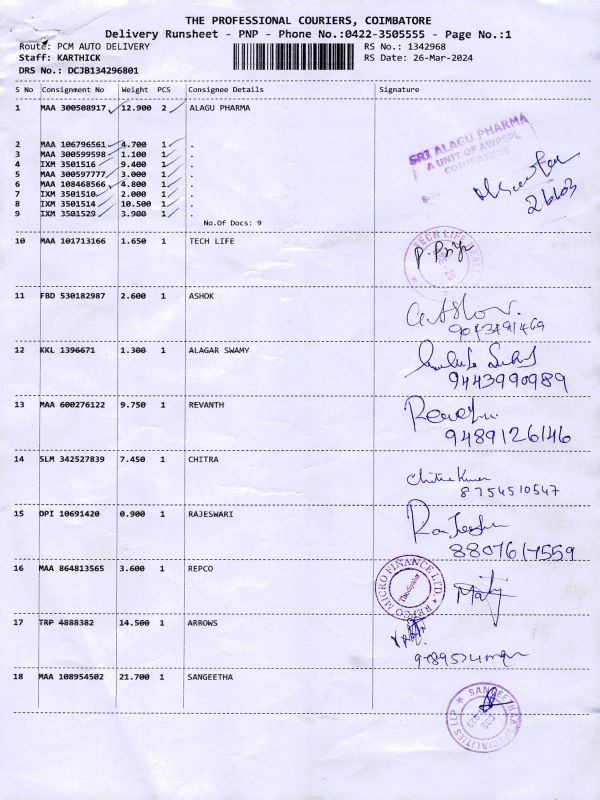 THE PROFESSIONAL COURIERS, COIMBATORE
Delivery Runsheet - PNP - Phone No.:0422-3505555 - Page No.:1
Route: PCM AUTO DELIVERY RS No.: 1342968
Staff: KARTHICK RS Date: 26-Mar-2024
DRS No.: DCJB134296801
S No Consignment No Weight PCS Consignee Details Signature
1 MAA 300508917 12.900 2 ALAGU PHARMA
SRI ALAGU PHARMA
A UNIT OF AWPSPL
COIMBATORE
2 MAA 106796561 4.700 1 .
3 MAA 300599598 1.100 1 .
4 IXM 3501516 9.400 1 .
5 MAA 300597777 3.000 1 .
6 MAA 108468566 4.800 1 .
7 IXM 3501510 2.000 1 .
8 IXM 3501514 10.500 1 .
9 IXM 3501529 3.900 1 .
No.Of Docs: 9
10 MAA 101713166 1.650 1 TECH LIFE
TECH LIFE
P. Priya
11 FBD 530182987 2.600 1 ASHOK
9043491469
12 KKL 1396671 1.300 1 ALAGAR SWAMY
9443990989
13 MAA 600276122 9.750 1 REVANTH
9489126146
14 SLM 342527839 7.450 1 CHITRA
8754510547
15 DPI 10691420 0.900 1 RAJESWARI
8807617559
16 MAA 864813565 3.600 1 REPCO
REPCO MICRO FINANCE LTD.
17 TRP 4888382 14.500 1 ARROWS
18 MAA 108954502 21.700 1 SANGEETHA